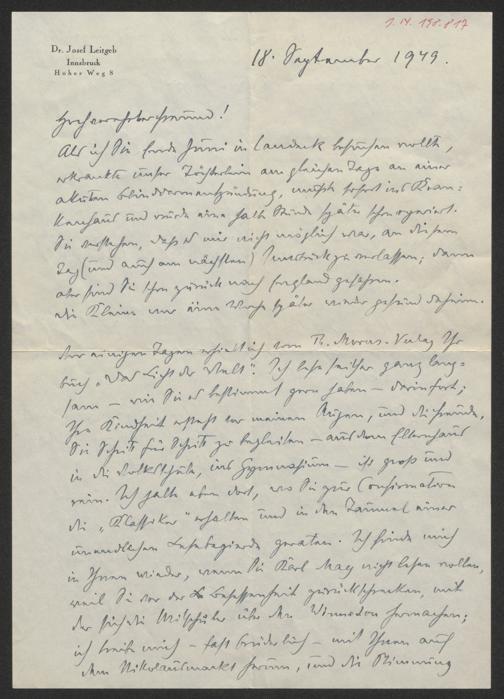 J.N. 198.817
Dr. Josef Leitgeb
Innsbruck
Hoher Weg 8
18. September 1949.
Hochverehrter Freund!
Als ich Sie Ende Juni in Landeck besuchen wollte,
erkrankte unser Töchterlein am gleichen Tage an einer
akuten Blinddarmentzündung, musste sofort ins Kran-
kenhaus und wurde eine halbe Stunde später schon operiert.
Sie verstehen, dass es mir nicht möglich war, an diesem
Tag (und auch am nächsten) Innsbruck zu verlassen; dann
aber sind Sie schon zurück nach England gefahren.
Die Kleine war eine Woche später wieder gesund daheim.
Vor einigen Tagen erhielt ich vom Th. Morus-Verlag Ihr
Buch „Das Licht der Welt“. Ich lese seither ganz lang-
sam – wie Sie es bestimmt gern haben – darin fort;
Ihre Kindheit ersteht vor meinen Augen, und die Freude,
Sie Schritt für Schritt zu begleiten – aus dem Elternhaus
in die Volksschule, ins Gymnasium – ist groß und
rein. Ich halte eben dort, wo Sie zur Confirmation
die „Klassiker“ erhalten und in den Taumel einer
unendlichen Lesebegierde geraten. Ich finde mich
in Ihnen wieder, wenn Sie Karl May nicht lesen wollen,
weil Sie vor der Besessenheit zurückschrecken, mit
der sich die Mitschüler über den Winnetou hermachen;
ich treibe mich – fast brüderlich – mit Ihnen auf
dem Nikolausmarkt herum, und die Stimmung